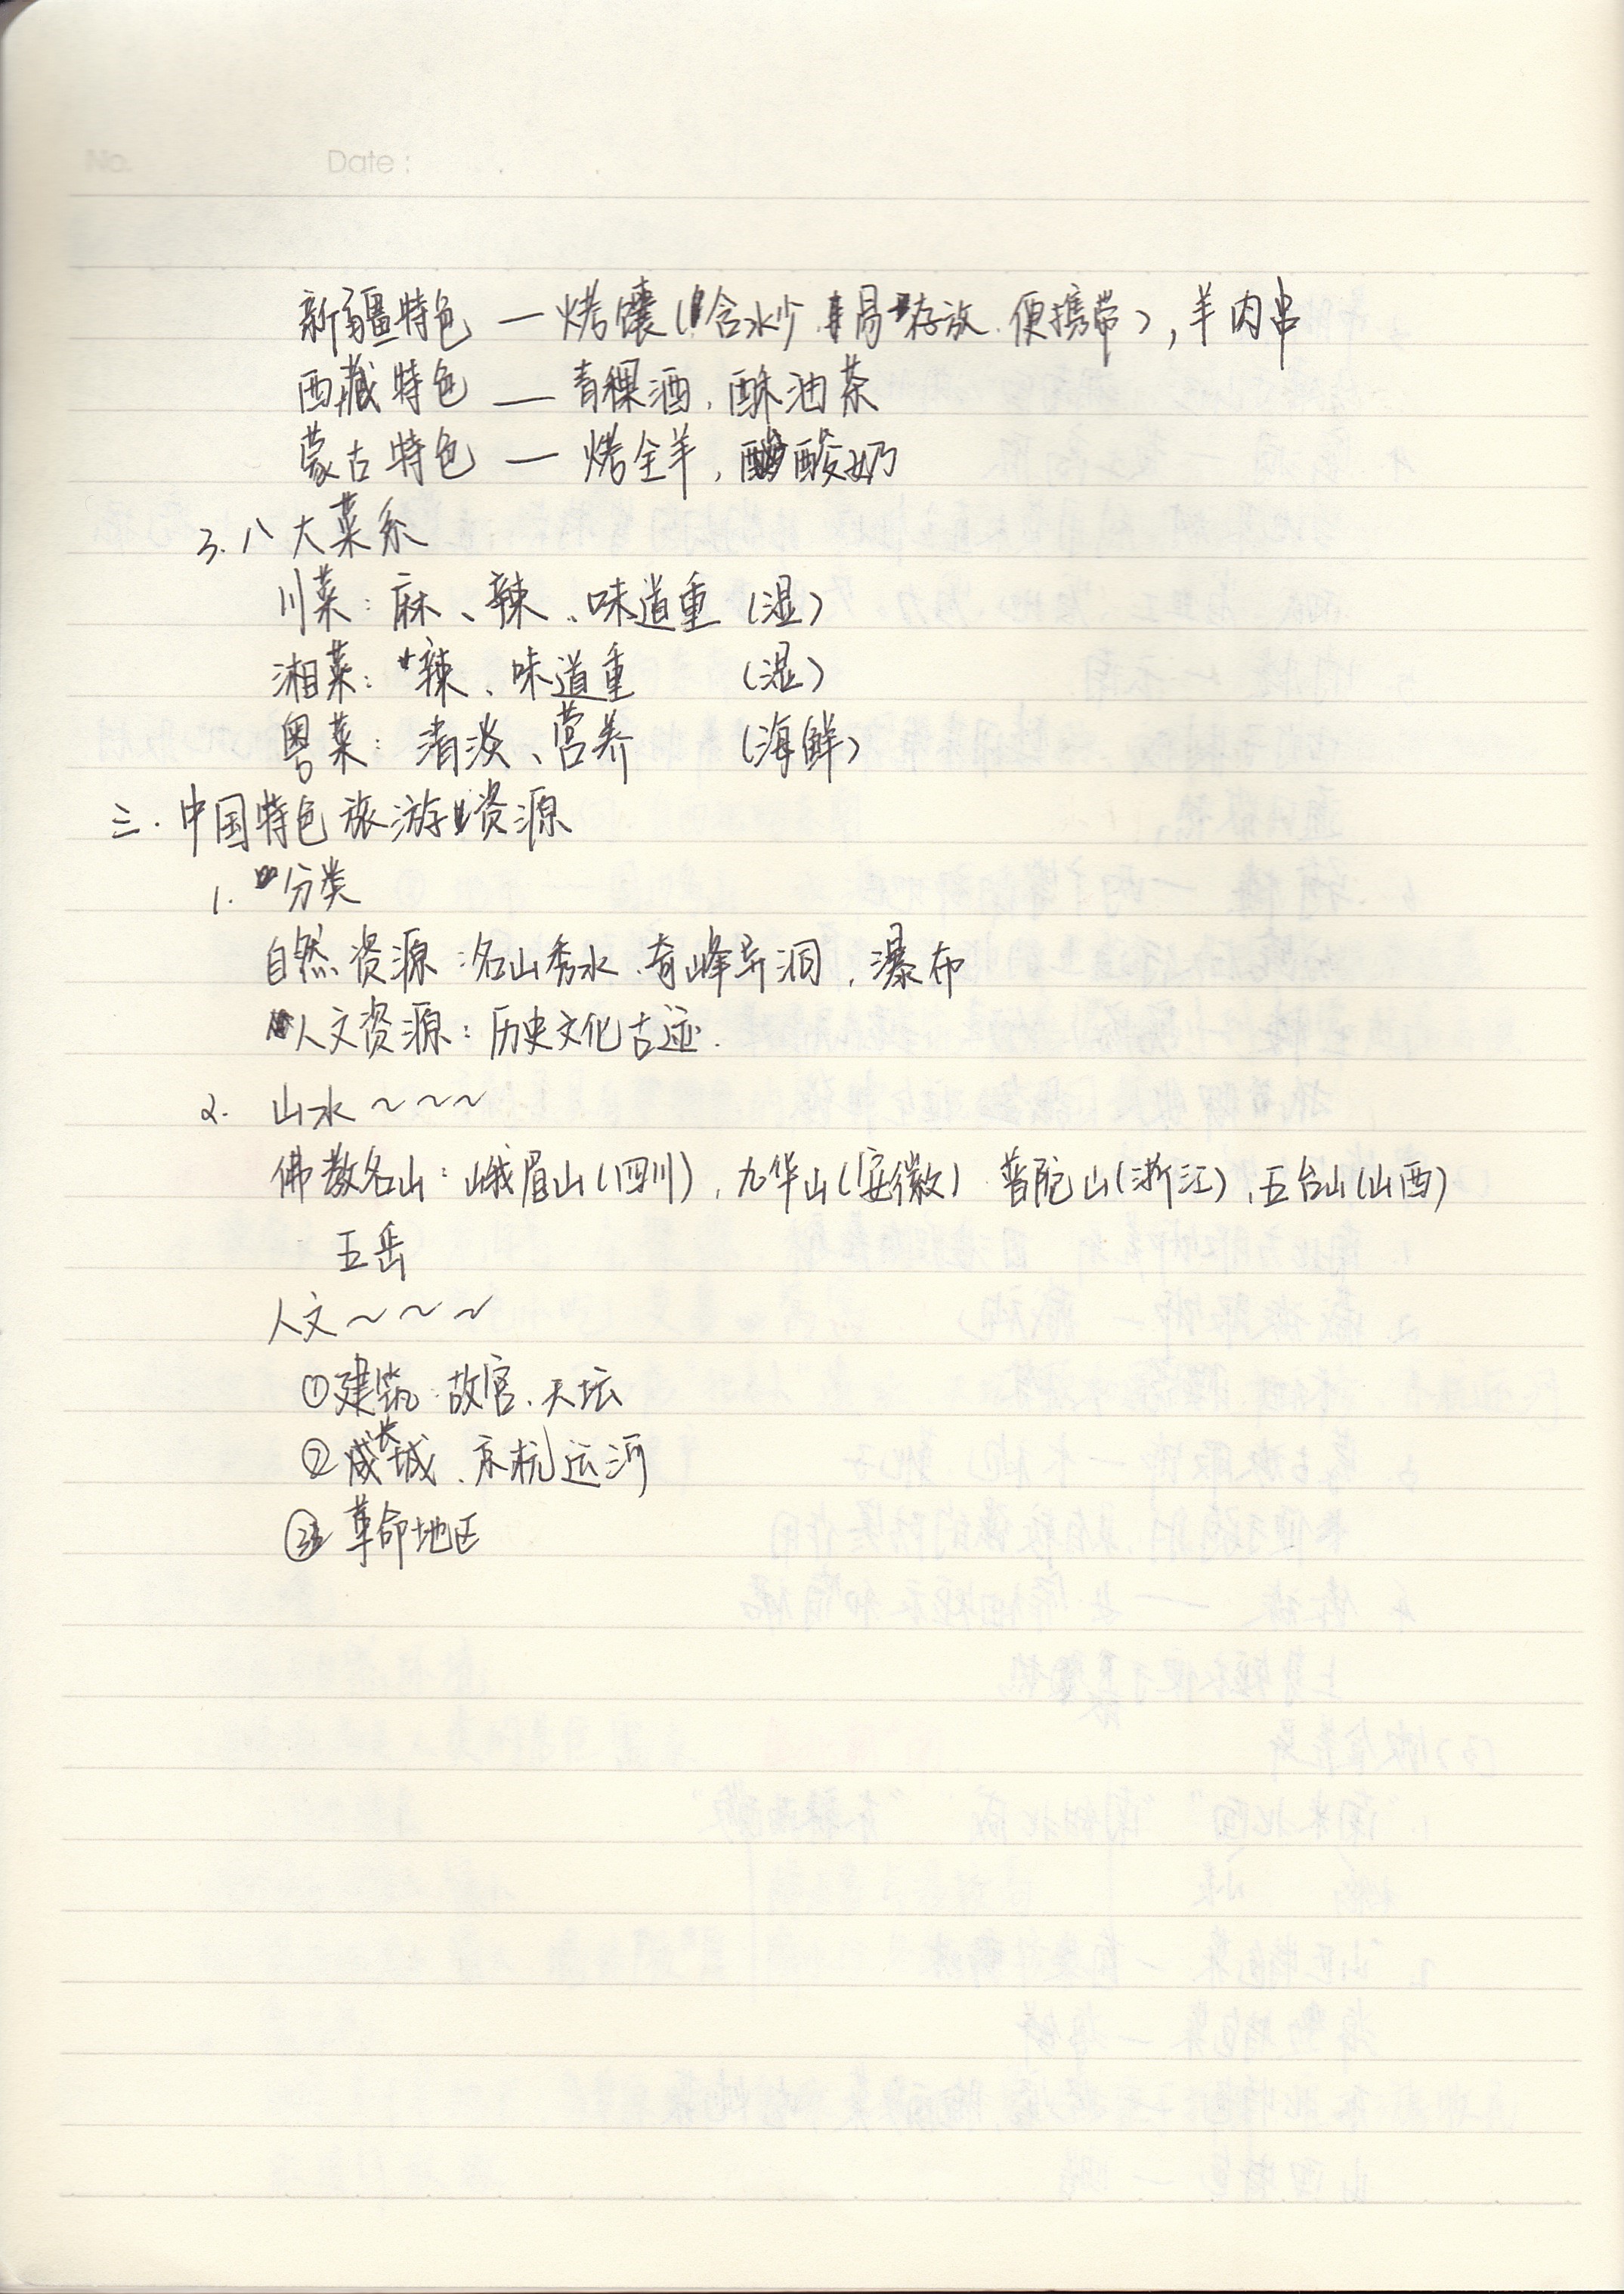 No.    Date:
新疆特色 — 烤馕(含水少、易存放、便携带),羊肉串
西藏特色 — 青稞酒、酥油茶
蒙古特色 — 烤全羊,酸奶
3. 八大菜系
川菜:麻、辣、味道重 (湿)
湘菜:辣、味道重 (湿)
粤菜:清淡、营养 (海鲜)
三. 中国特色旅游资源
1. 分类
自然资源:名山秀水、奇峰异洞、瀑布
人文资源:历史文化古迹.
2. 山水~~~
佛教名山:峨眉山(四川),九华山(安徽) 普陀山(浙江)、五台山(山西)
五岳
人文~~~
①建筑:故宫、天坛
②长城、京杭运河
③ 革命地区